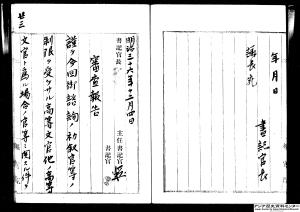 年月日
議長宛
書記官長
明治三十六年十二月四日
書記官長
主任書記官
審査報告
謹テ今回御諮詢ノ初叙官等ノ
制限ヲ受ケサル高等文官他ノ高等
文官ト為ル場合ノ官等ニ関スル件ヲ